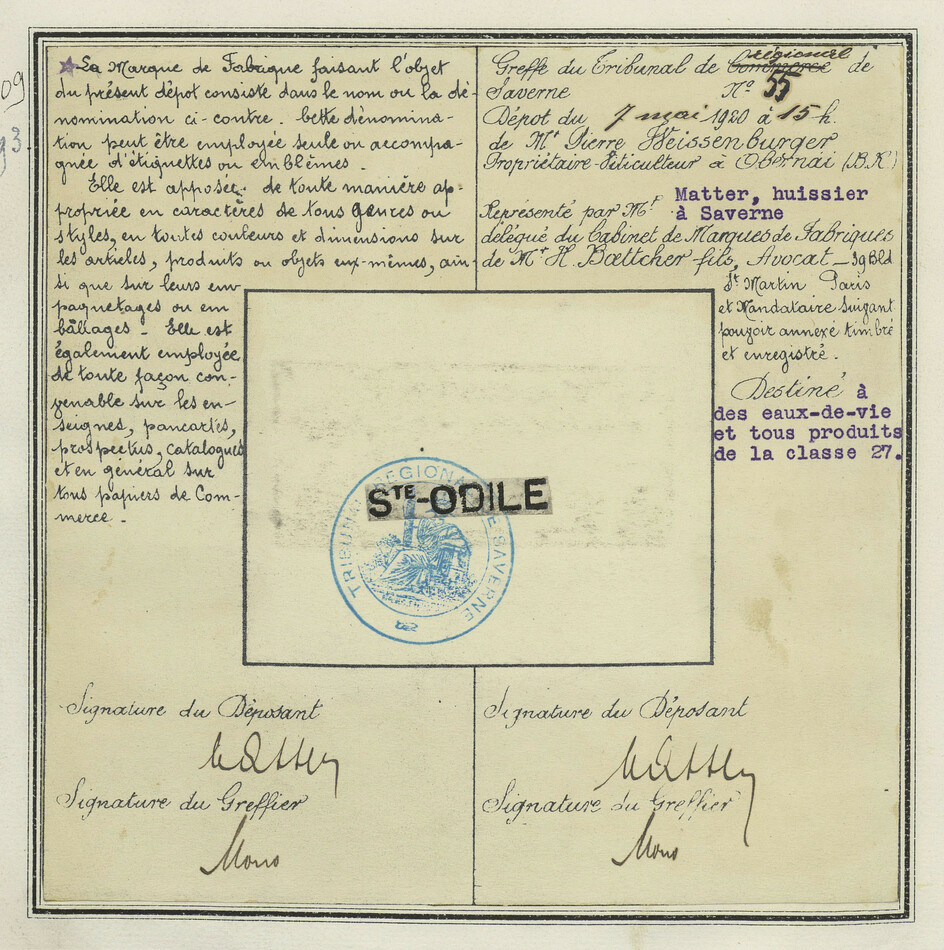 La Marque de Fabrique faisant l'objet
du présent dépot consiste dans le nom ou la dé-
nomination ci-contre. Cette dénomina-
tion peut être employée seule ou accompa-
gnée d'étiquettes ou emblèmes.
Elle est apposée de toute manière ap-
propriée en caractères de tous genres ou
styles, en toutes couleurs et dimensions sur
les articles, produits ou objets eux-mêmes, ain-
si que sur leurs em
paquetages ou em
ballages - Elle est
également employée
de toute façon con-
venable sur les en-
seignes, pancartes,
prospectus, catalogues
et en général sur
tous papiers de Com-
merce.
Greffe du Tribunal de Commerce régional de
Saverne N° 55
Dépot du 7 mai 1920 à 15 h.
de Mr Pierre Weissenburger
Propriétaire-Viticulteur à Obernai (B.R.)
Représenté par Mr Matter, huissier
à Saverne
délégué du Cabinet de Marques de Fabriques
de Mr H. Bœttcher fils, Avocat - 39 Bld
St Martin Paris
et Mandataire suivant
pouvoir annexé timbré
et enregistré.
Destiné à
des eaux-de-vie
et tous produits
de la classe 27.
STE-ODILE
TRIBUNAL REGIONAL DE SAVERNE
Signature du Déposant
Matter
Signature du Greffier
Signature du Déposant
Matter
Signature du Greffier